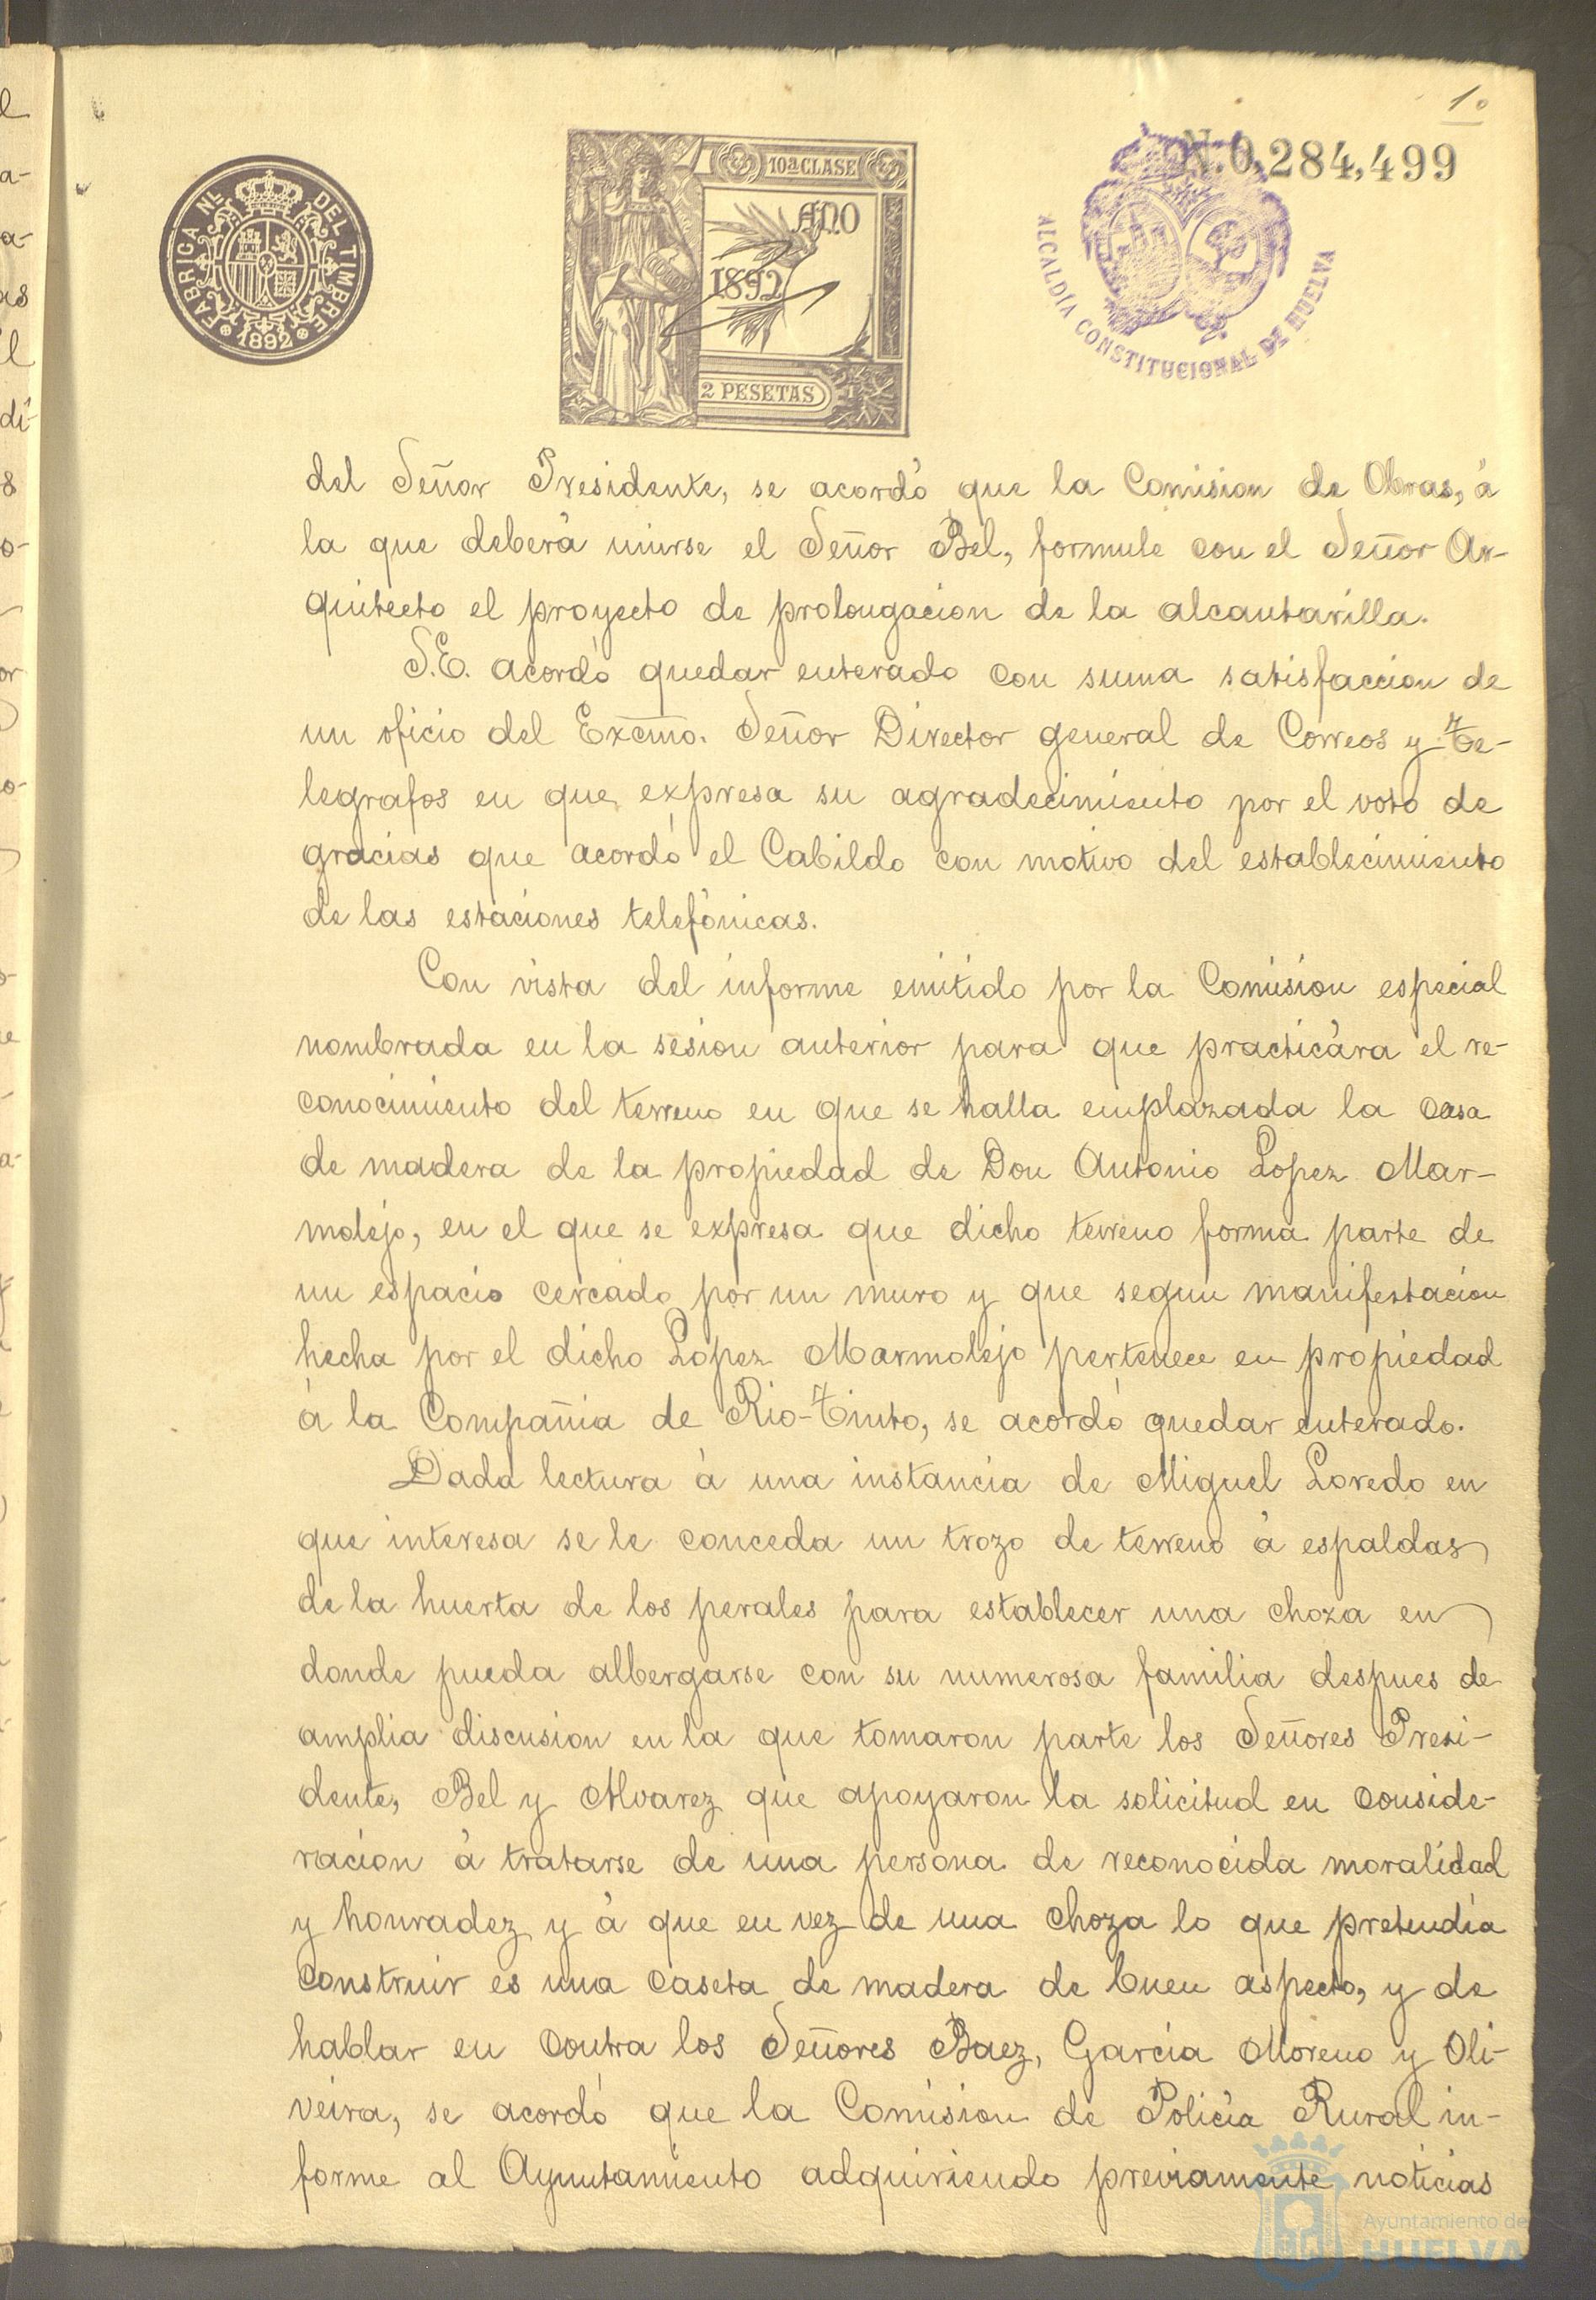 1.º
N.0,284,499
FÁBRICA Nl. DEL TIMBRE
1892
10ª CLASE
AÑO
1892
2 PESETAS
ALCALDÍA CONSTITUCIONAL DE HUELVA
del Señor Presidente, se acordó que la Comision de Obras, á
la que deberá unirse el Señor Bel, formule con el Señor Ar-
quitecto el proyecto de prolongacion de la alcantarilla.
S.E. acordó quedar enterado con suma satisfaccion de
un oficio del Excmo. Señor Director general de Correos y Te-
legrafos en que expresa su agradecimiento por el voto de
gracias que acordó el Cabildo con motivo del establecimiento
de las estaciones telefónicas.
Con vista del informe emitido por la Comision especial
nombrada en la sesion anterior para que practicára el re-
conocimiento del terreno en que se halla emplazada la casa
de madera de la propiedad de Don Antonio Lopez Mar-
molejo, en el que se expresa que dicho terreno forma parte de
un espacio cercado por un muro y que segun manifestacion
hecha por el dicho Lopez Marmolejo pertenece en propiedad
á la Compañia de Rio-Tinto, se acordó quedar enterado.
Dada lectura á una instancia de Miguel Loredo en
que interesa se le conceda un trozo de terreno á espaldas
de la huerta de los perales para establecer una choza en
donde pueda albergarse con su numerosa familia despues de
amplia discusion en la que tomaron parte los Señores Presi-
dente, Bel y Alvarez que apoyaron la solicitud en conside-
racion á tratarse de una persona de reconocida moralidad
y honradez y á que en vez de una choza lo que pretendia
construir es una caseta de madera de buen aspecto, y de
hablar en contra los Señores Baez, Garcia Moreno y Oli-
veira, se acordó que la Comision de Policia Rural in-
forme al Ayuntamiento adquiriendo previamente noticias
Ayuntamiento de
HUELVA